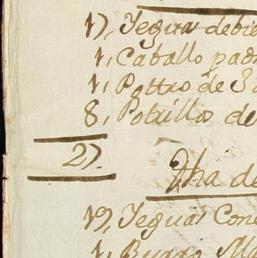 17, Yeguas debie
1, Caballo pad
1, Pottro de 3 a
8, Potrillos de
27.
Ytha de
19, Yeguas Con
1, Burro Ma